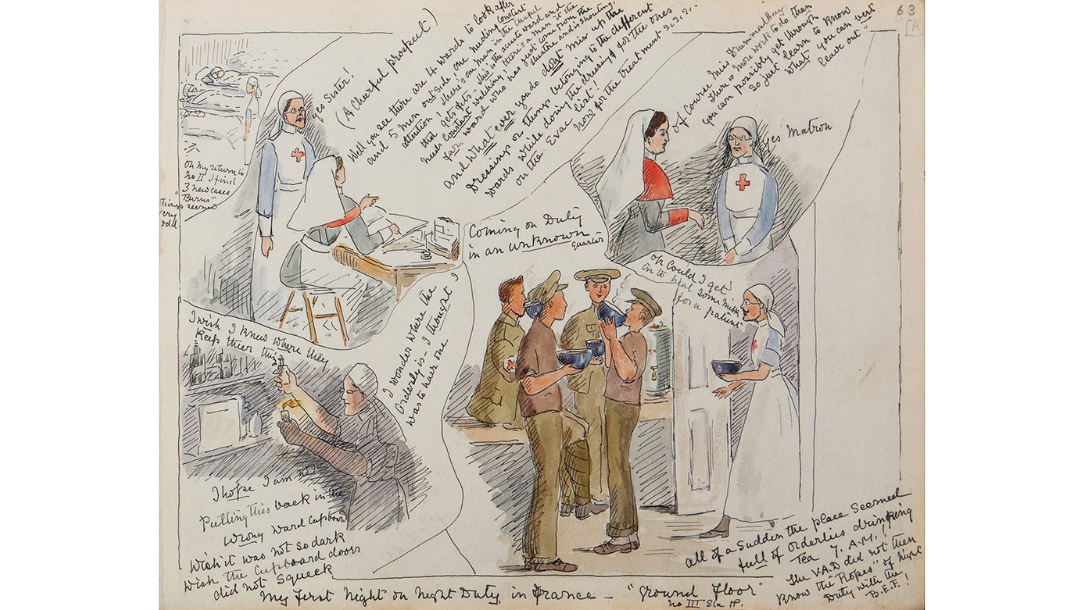 63
[A]
yes Sister!
(A Cheerful prospect)
Well you see there are 4 wards to look after
and 5 men outside one needing constant
attention & there's one man in the
that gets fits - this the acute ward and
needs constant watching, there's a man in the
far ward who has just come from the
theatre and is shouting.
and What ever you do dont mix up the
Dressings or things belonging to the different
wards while doing the dressings for the ones
on the Evac list!
now for the treatment 2.2.2..
of Course Miss Brummalkug
There is more work to do than
you can possibly get through
so just learn to know
what you can best
leave out"
yes Matron
on my return to
no II I find
3 new cases
"Burns"
Things seemed
very
odd.
Coming on Duty
in an unknown
quarter
oh Could I get
in to heat some milk
for a patient
I wish I knew where they
keep their things
I wonder where the
Orderly is - I thought I
was to have one
I hope I am not
Putting this back in the
wrong ward Cupboard
Wish it was not so dark
Wish the Cupboard doors
did not Squeek
all of a Sudden the place Seemed
full of Orderlies drinking
Tea 7. A.M.!
The V.A.D did not then
Know the "Ropes" of Night
Duty with the
B.E.F.!
My first Night on Night Duty in France - "Ground floor"
no III Sta HP.